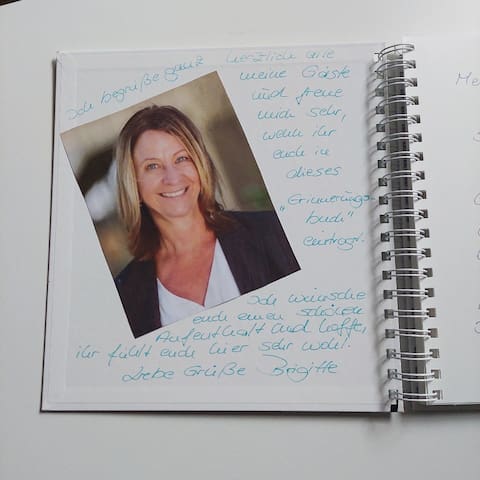 Ich begrüße ganz herzlich alle
meine Gäste
und freue
mich sehr,
wenn ihr
euch in
dieses
„Erinnerungs-
buch"
eintragt.
Ich wünsche
euch einen schönen
Aufenthalt und hoffe,
ihr fühlt euch hier sehr wohl!
Liebe Grüße Brigitte
Me